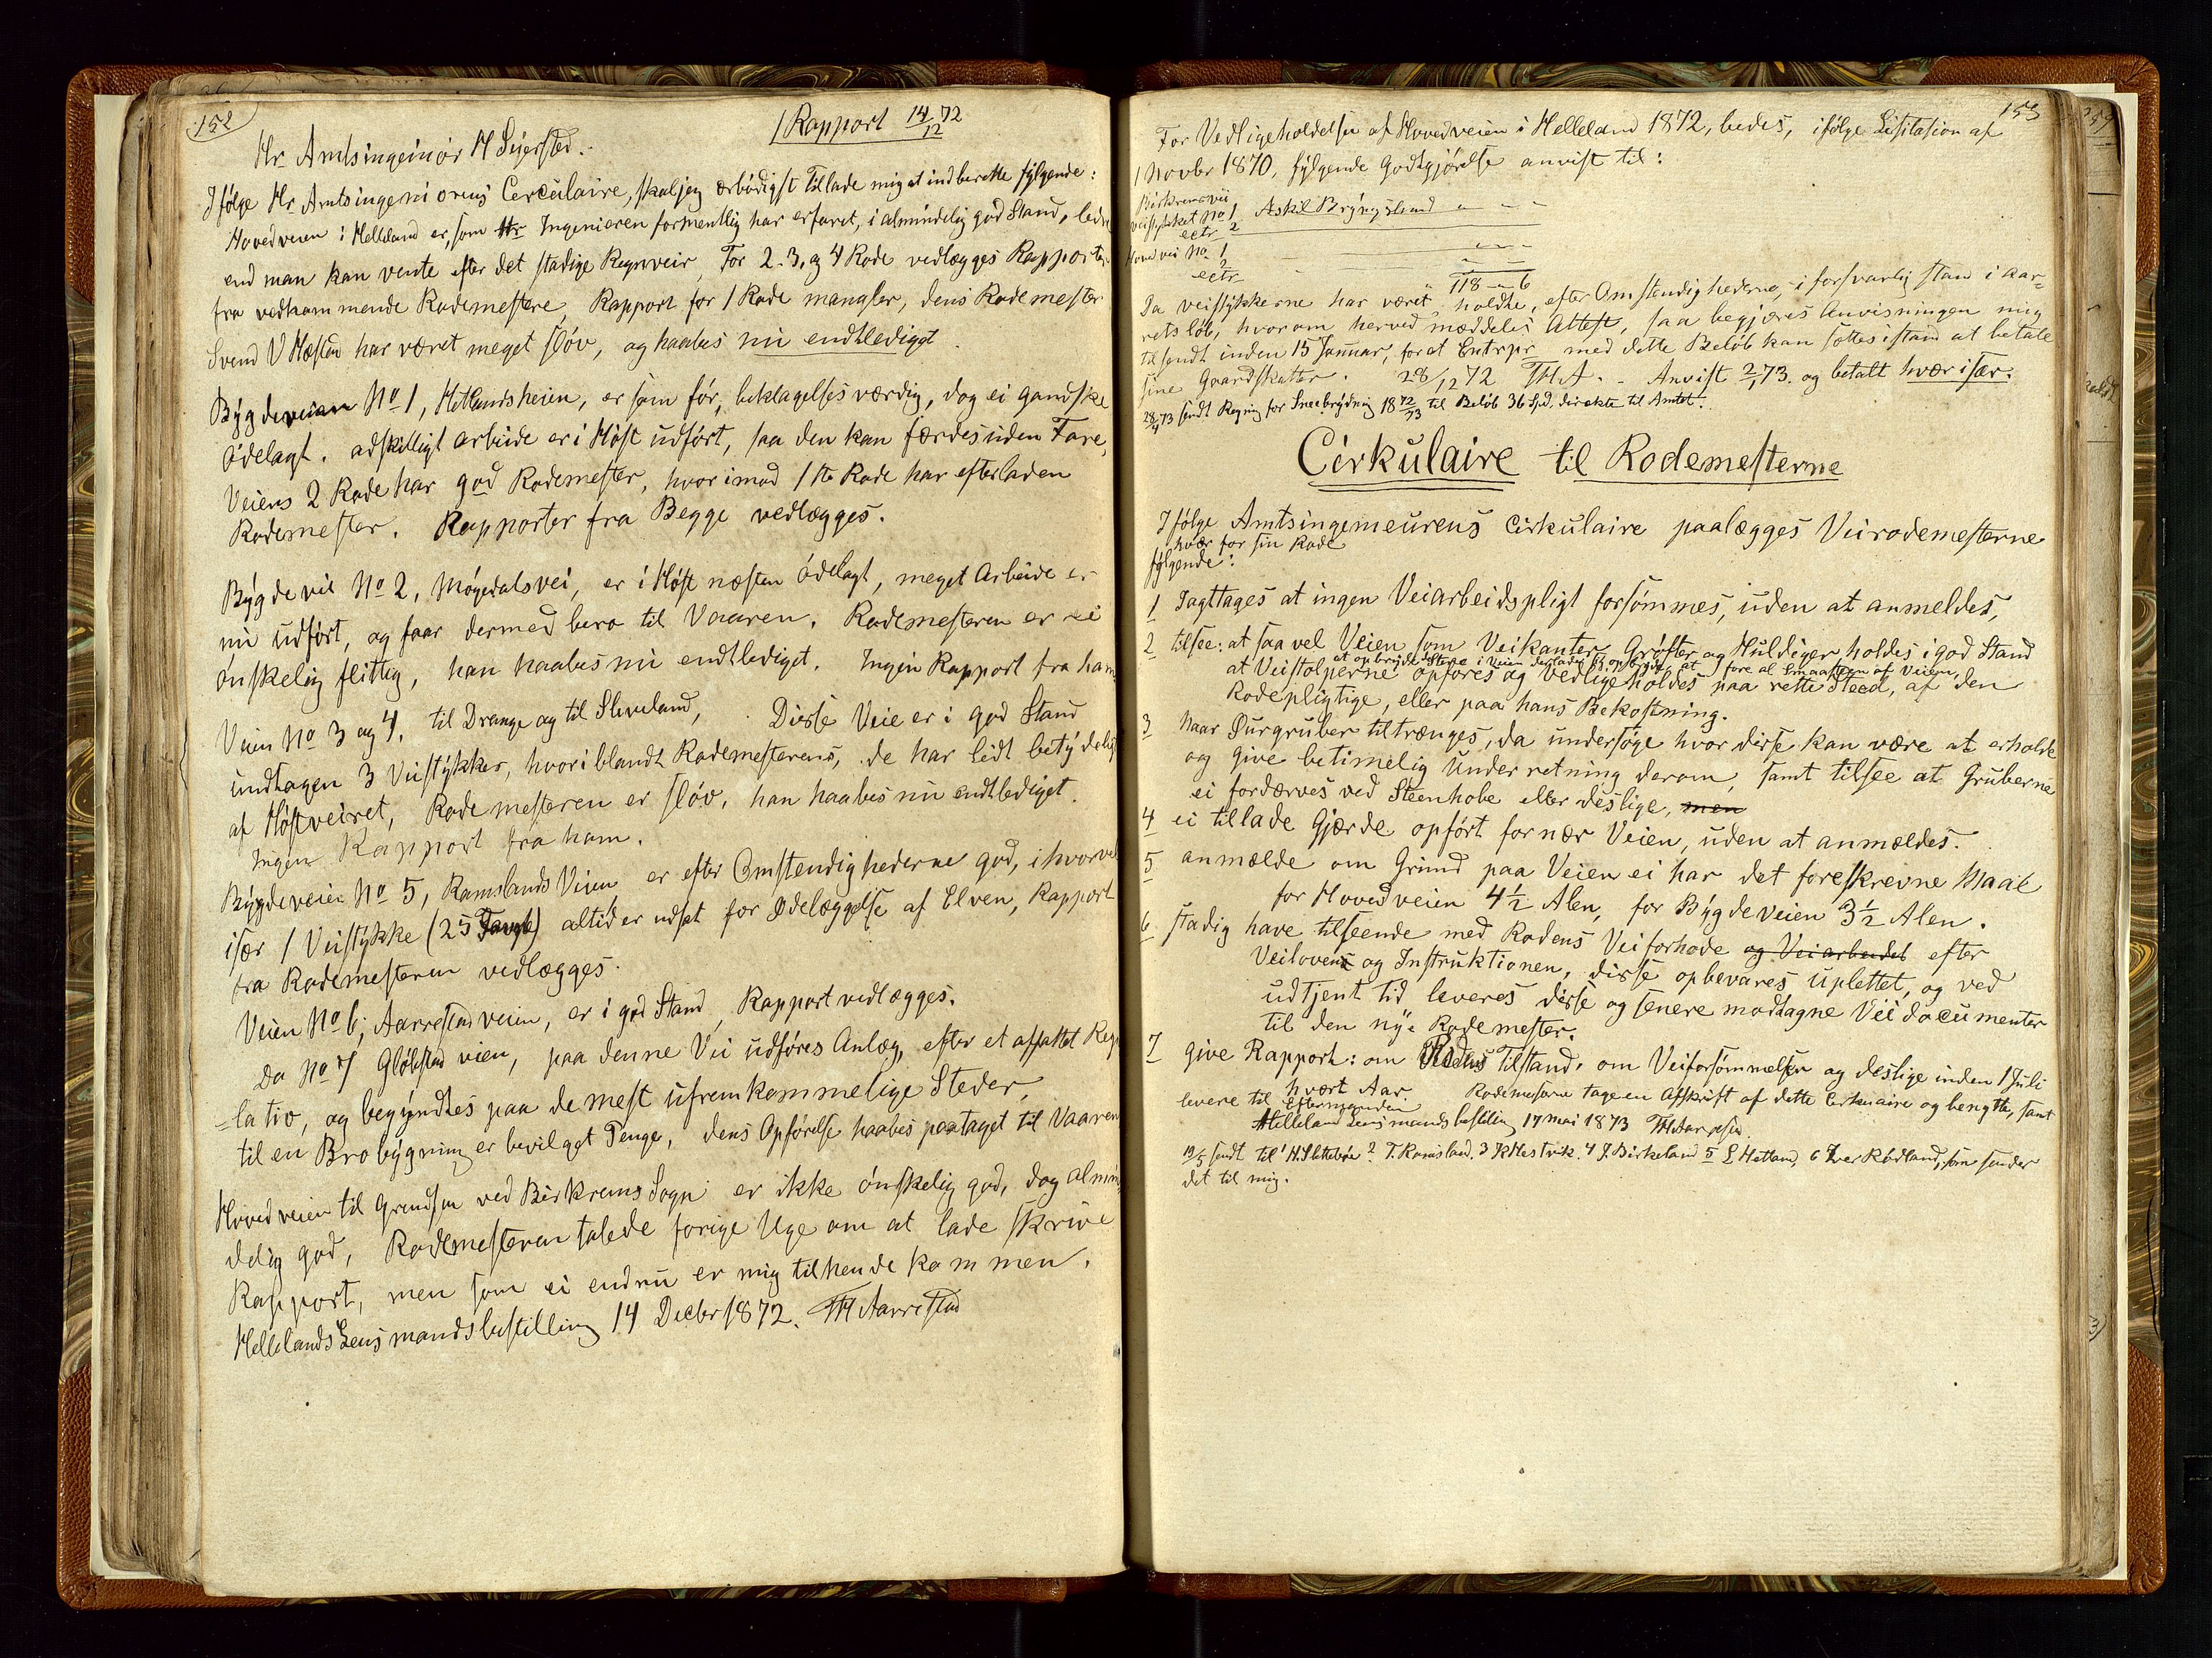 152
Rapport 14/12 72
Hr Amtsingeiniör H Seiersted.
Ifölge Hr Amtsingeniörens Cerculaire, skal jeg ærbödigst tillade mig at indberette fýlgende:
Hovedveien i Helleland er, som Hr Ingeniören formentlig har erfaret, i almindelig god Stand, bedre
end man kan vente efter det stadige Regnveir, For 2. 3. og 4 Rode vedlægges Rapporter
fra vedkommende Rodemestere, Rapport for 1 Rode mangler, dens Rodemester
Svend V Hæstad har været meget slöv, og haabes nu endtlediget.
Býgdeveien No 1, Hetlandsheien, er som för, beklagelsesværdig, dog ei gandske
ödelagt. adskilligt arbeide er i Höst udfört, saa den kan færdes uden Fare,
Veiens 2 Rode har god Rodemester, hvorimod 1ste Rode har efterladen
Rodemester. Rapporter fra Begge vedlægges.
Býgdevei No 2, Mögedalsvei, er i Höst næsten ödelagt, meget Arbeide er
nu udfört, og faar dermed bero til Vaaren. Rodemesteren er ei
önskelig flittig, han haabes nu endtlediget. Ingen Rapport fra ham
Veien No 3 og 4, til Drange og til Sleveland, Disse Veie er i god Stand
undtagen 3 Veistýkker, hvoriblandt Rodemesterens, de har lidt betýdelig
af Höstveiret, Rodemesteren er slöv, han haabes nu endtlediget.
Ingen Rapport fra ham.
Býgdeveien No 5, Ramslands Veien er efter Omstendighederne god, ihvorvel
især 1 Veistýkke (25 Favne) altid er udsat for Ödelæggelse af Elven, Rapport
fra Rodemesteren vedlægges.
Veien No 6, Aarrestadveien, er i god Stand, Rapport vedlægges.
Do No 7 Glöbstad veien, paa denne Vei udföres Anlæg, efter et affattet Regu
=lativ, og begýndtes paa de mest ufremkommelige Steder,
til en Brobýgning er bevilget Penge, dens Opförelse haabes paataget til Vaaren
Hovedveien til Grændsen ved Birkrems Sogn er ikke önskelig god, dog almin
delig god, Rodemesteren talede forige Uge om at lade skrive
Rapport, men som ei endnu er mig tilhende kommen.
Hellelands Lensmandsbestilling 14 Decbr 1872. TH Aarrestad
153
For Vedligeholdelse af Hovedveien i Helleland 1872, bedes, ifölge Lisitasion af
1 Novbr 1870, fýlgende Godtgjörelse anvist til:
Birkremsvei
veistýkket No 1 Askil Brýngsland " — —
ectr 2
Hovedvei No 1 " — —
2
ectr
118 — 6
Da veistýkkerne har været holdte, efter Omstendighederne, i forsvarlig stan i aar=
rets löb, hvorom herved meddeles Attest, saa begjæres Anvisningen mig
tilsendt inden 15 Januar, for at Entrpr med dette Belöb kan sættes istand at betale
sine Gaardskatter. 28/12 72 THA. - Anvist 2/1 73. og betalt hvær især.
28/4 73 sendt Regning for Sneebrýdning 18 72/73 til Belöb 36 Spd. direkte til Amtet.
Cirkulaire til Rodemesterne
Ifölge Amtsingenieurens Cirkulaire paalægges Veirodemesterne
hvær for sin Rode
fýlgende:
1 Iagttages at ingen Veiarbeidspligt forsömmes, uden at anmeldes,
2 tilsee: at saavel Veien som Veikanter, Gröfter og Huldiger holdes i god Stand
at opbrýde Stene i Veien fore al Smaasteen af Veien,
at Veistolperne opföres og vedligeholdes paa rette Steed, af den
Rodepligtige, eller paa hans Bekostning.
3 Naar Öurgruber tiltrænges, da undersöge hvor disse kan være at erholde
og give betimelig Underretning derom, samt tilsee at Gruberne
ei fordærves ved Steenhobe eller deslige, men
4 ei tillade Gjærde opfört for nær Veien, uden at anmældes.
5 anmælde om Grind paa Veien ei har det foreskrevne Maal
for Hovedveien 4½ Alen, for Býgdeveien 3½ Alen.
6 stadig have tilseende med Rodens Veiforhode og Veiarbeidet efter
Veiloven og Instruktionen, disse opbevares uplettet, og ved
udtjent tid leveres disse og senere modtagne Vei documenter
til den nýe Rodemester.
7 give Rapport: om Rodens Tilstand. om Veiforsömmelser og deslige inden 1 Juli
hvært Aar. Rodemesterne tage en Afskrift af dette Cirkulaire og benýtte, samt
levere til Eftermanden
Helleland Lensmandsbestilling 17 mai 1873 TH Aarrestad
19/5 sendt til 1 H. Sletteböe 2 T. Ramsland, 3 K Hestvik. 4 J. Birkeland 5 E Hetland, 6 Iver Rödland, som sender
det til mig.